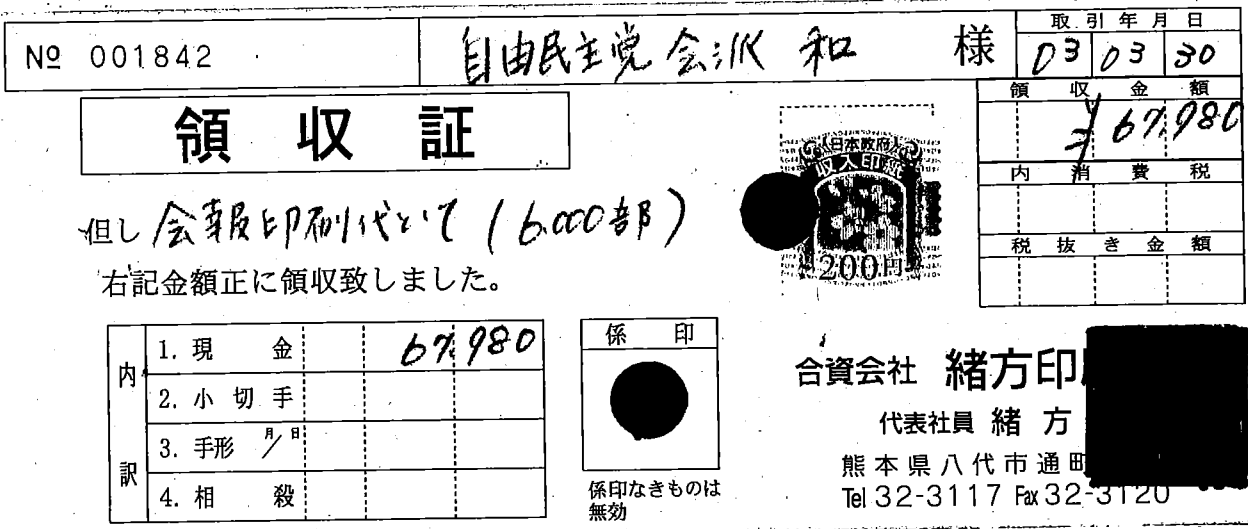 № 001842
自由民主党会派 和 様
取引年月日
03 03 30
領収金額
¥67,980
内消費税
税抜き金額
領収証
日本政府
収入印紙
200円
但し 会報印刷代として (6,000部)
右記金額正に領収致しました。
内訳
1. 現金 67,980
2. 小切手
3. 手形 月/日
4. 相殺
係印
係印なきものは
無効
合資会社 緒方印
代表社員 緒方
熊本県八代市通町
Tel 32-3117 Fax 32-3120